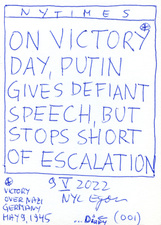 NYTIMES
ON VICTORY
DAY, PUTIN
GIVES DEFIANT
SPEECH, BUT
STOPS SHORT
OF ESCALATION
9 V 2022
NYC
VICTORY
OVER NAZI
GERMANY
MAY 9, 1945
(001)